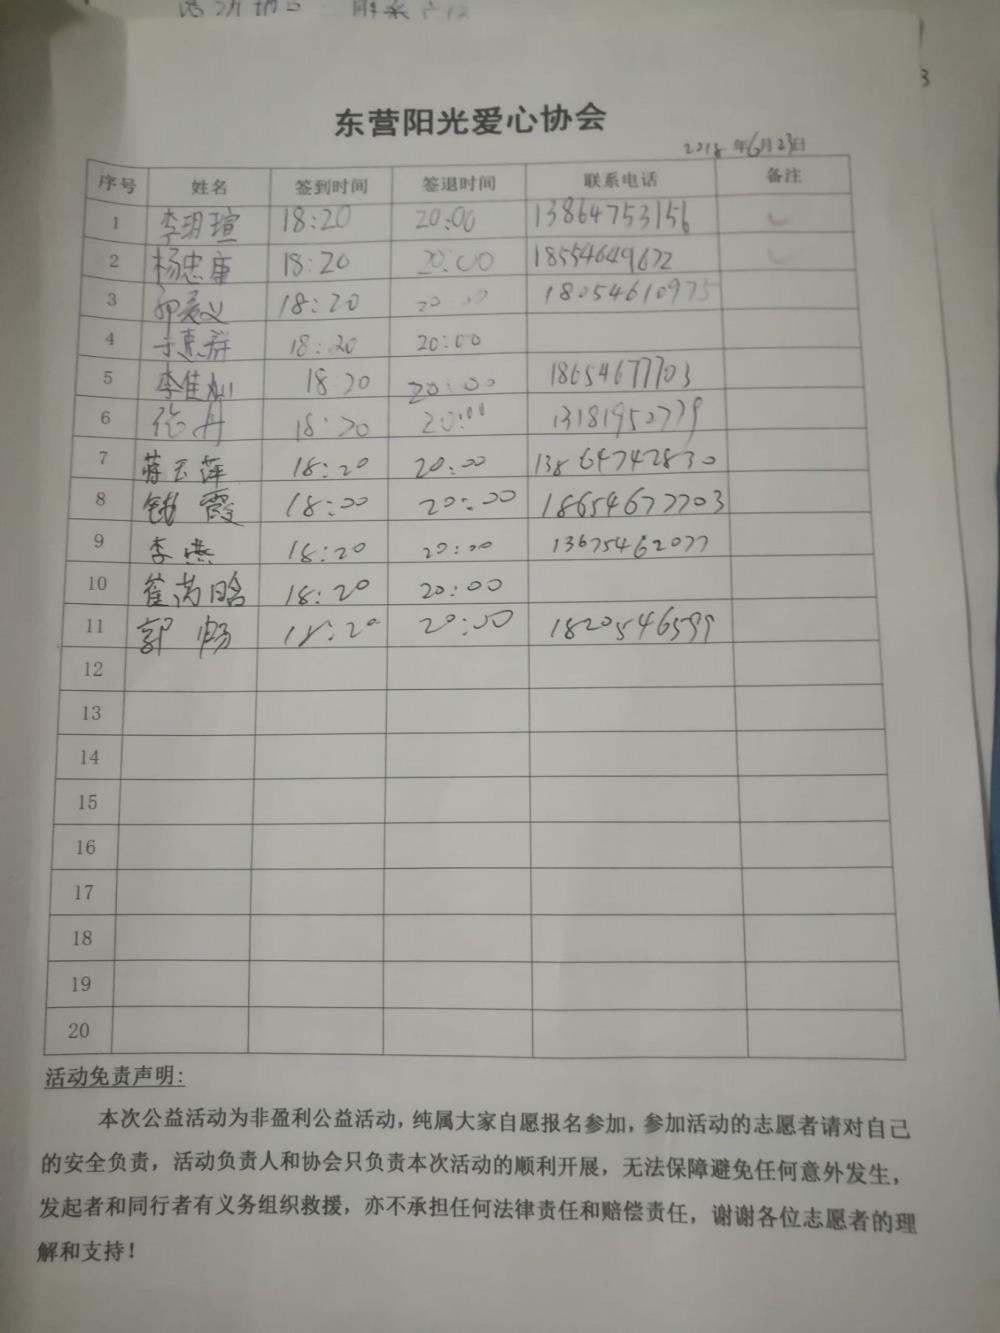 东营阳光爱心协会
2018年6月23日
序号 姓名 签到时间 签退时间 联系电话 备注
1 李玥瑄 18:20 20:00 13864753156
2 杨忠康 18:20 20:00 18554649672
3 18:20 20:00 18054610975
4 于惠群 18:20 20:00
5 李佳灿 18:20 20:00 18654677703
6 徐丹 18:20 20:00 13181952779
7 蒋玉萍 18:20 20:00 13864742830
8 霞 18:00 20:00 18654677703
9 李燕 18:20 20:00 13675462077
10 崔芮晗 18:20 20:00
11 郭畅 18:20 20:00 1820546599
12
13
14
15
16
17
18
19
20
活动免责声明:
本次公益活动为非盈利公益活动，纯属大家自愿报名参加，参加活动的志愿者请对自己
的安全负责，活动负责人和协会只负责本次活动的顺利开展，无法保障避免任何意外发生，
发起者和同行者有义务组织救援，亦不承担任何法律责任和赔偿责任，谢谢各位志愿者的理
解和支持！